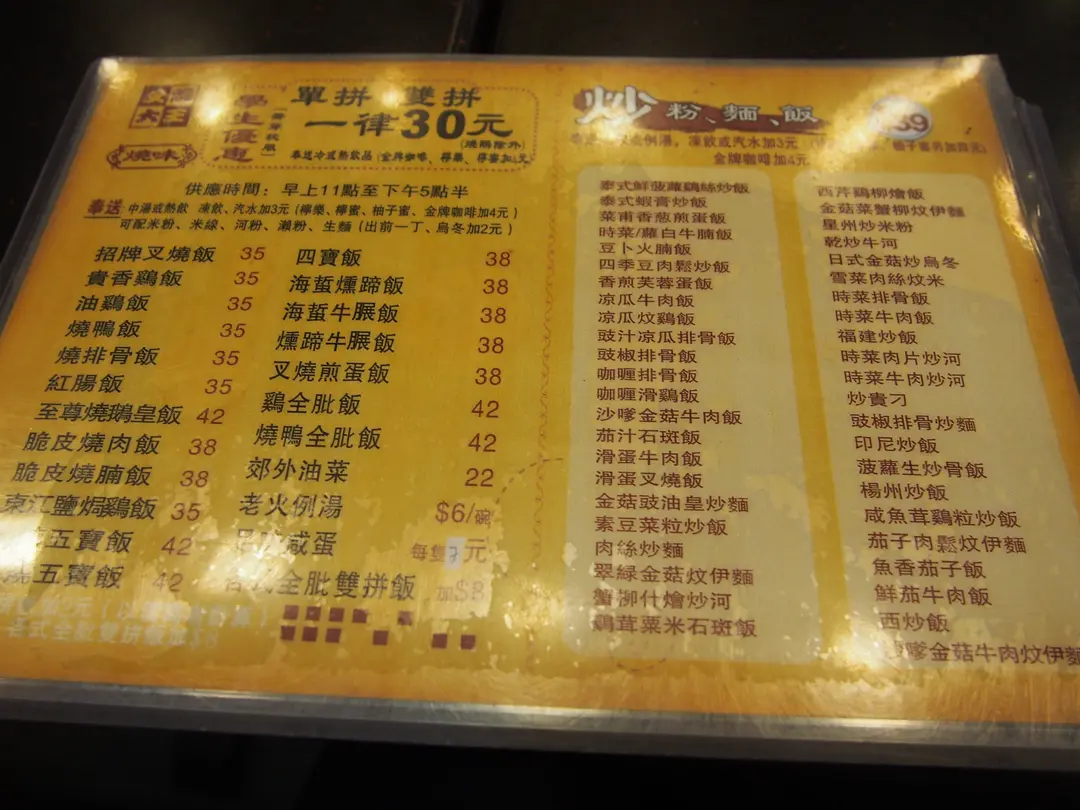 大王
燒味
學生優惠
單拼 雙拼
一律30元
(燒鵝除外)
奉送冷或熱飲品
供應時間：早上11點至下午5點半
奉送 中湯或熱飲 凍飲、汽水加3元（檸樂、檸蜜、柚子蜜、金牌咖啡加4元）
可配米粉、米線、河粉、瀨粉、生麵（出前一丁、烏冬加2元）
招牌叉燒飯 35
貴香鷄飯 35
油鷄飯 35
燒鴨飯 35
燒排骨飯 35
紅腸飯 35
至尊燒鵝皇飯 42
脆皮燒肉飯 38
脆皮燒腩飯 38
東江鹽焗鷄飯 35
五寶飯 42
燒五寶飯 42
四寶飯 38
海蜇燻蹄飯 38
海蜇牛𦟌飯 38
燻蹄牛𦟌飯 38
叉燒煎蛋飯 38
鷄全肶飯 42
燒鴨全肶飯 42
郊外油菜 22
老火例湯 $6/碗
咸蛋 每隻 元
全肶雙拼飯 加$8
炒 粉、麵、飯
例湯，凍飲或汽水加3元
金牌咖啡加4元
泰式鮮菠蘿鷄絲炒飯
泰式蝦膏炒飯
菜甫香葱煎蛋飯
時菜/蘿白牛腩飯
豆卜火腩飯
四季豆肉鬆炒飯
香煎芙蓉蛋飯
凉瓜牛肉飯
凉瓜炆鷄飯
豉汁凉瓜排骨飯
豉椒排骨飯
咖喱排骨飯
咖喱滑鷄飯
沙嗲金菇牛肉飯
茄汁石斑飯
滑蛋牛肉飯
滑蛋叉燒飯
金菇豉油皇炒麵
素豆菜粒炒飯
肉絲炒麵
翠緑金菇炆伊麵
蟹柳什燴炒河
鷄茸粟米石斑飯
西芹鷄柳燴飯
金菇菜蟹柳炆伊麵
星州炒米粉
乾炒牛河
日式金菇炒烏冬
雪菜肉絲炆米
時菜排骨飯
時菜牛肉飯
福建炒飯
時菜肉片炒河
時菜牛肉炒河
炒貴刁
豉椒排骨炒麵
印尼炒飯
菠蘿生炒骨飯
楊州炒飯
咸魚茸鷄粒炒飯
茄子肉鬆炆伊麵
魚香茄子飯
鮮茄牛肉飯
西炒飯
嗲金菇牛肉炆伊麵